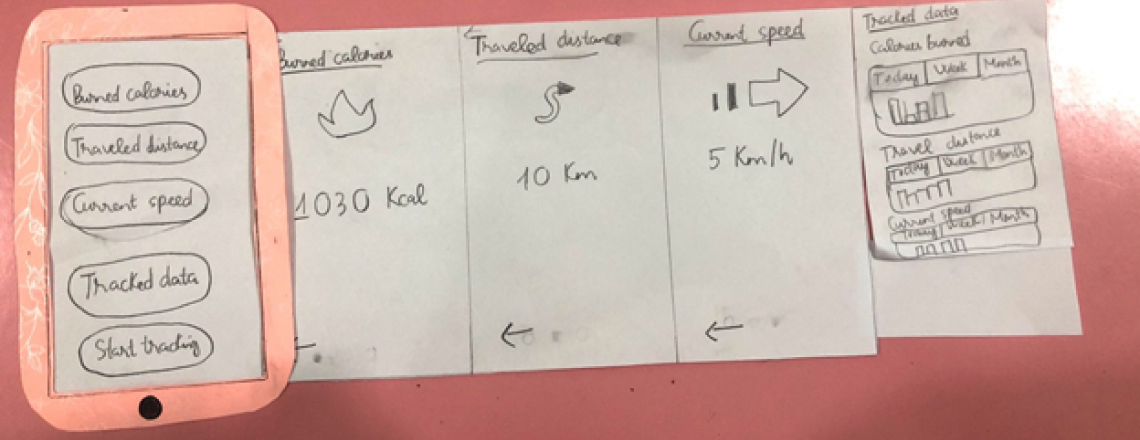 Burned calories
Traveled distance
Current speed
Tracked data
Start tracking
Burned calories
1030 Kcal
Traveled distance
10 Km
Current speed
5 Km/h
Tracked data
Calories burned
Today Week Month
Travel distance
Today Week Month
Current speed
Today Week Month